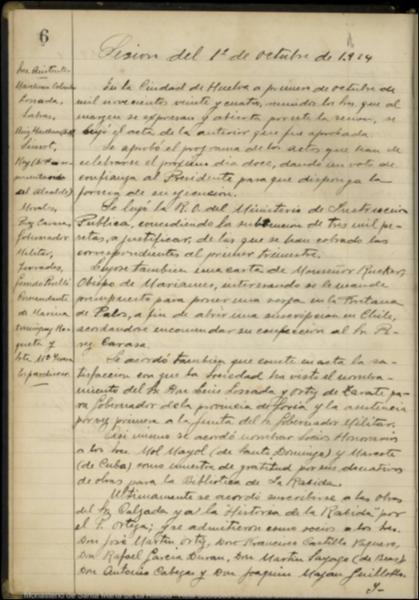 6
Sesion del 1º de octubre de 1924
Sres Asistentes
Marchena Colombo
Lossada,
Ruiz Marchena
Rey
del Alcalde)
Morales,
Garcia,
Gobernador
Militar,
Terrades,
Comandante
de Marina
y
En la Ciudad de Huelva a primero de octubre de
mil novecientos veinte y cuatro, reunidos los Sres. que al
margen se expresan y abierta por este la sesion, se
leyó el acta de la anterior que fue aprobada.
Se aprobó el programa de los actos que han de
celebrarse el proximo dia doce, dando un voto de
confianza al Presidente para que disponga la
forma de su ejecucion.
Se leyó la R.O. del Ministerio de Instruccion
Publica, concediendo la subvencion de tres mil pe-
setas, a justificar, de las que se han cobrado las
correspondientes al primer trimestre.
Leyose tambien una carta de Monseñor Rucker,
Obispo de Mariamés, interesando se le mande
presupuesto para poner una verja en la Fontana
de Palos, a fin de abrir una suscripcion en Chile,
acordandose encomendar su confeccion al Sr. Pe-
rez Carasa.
Se acordó tambien que conste en acta la sa-
tisfaccion con que la Sociedad ha visto el nombra-
miento del Sr. Don Luis Lossada y Ortiz de Zarate pa-
ra Gobernador de la provincia de Soria y la asistencia
por vez primera a la Junta del Sr. Gobernador Militar.
Asi mismo se acordó nombrar Socios Honorarios
a los Sres. Mol Mayol (de Santo Domingo) y Marcote
(de Cuba) como muestra de gratitud por sus donativos
de obras para la Biblioteca de La Rabida.
Ultimamente se acordó suscribirse a las obras
del Sr. Calzada y a "la Historia de la Rabida" por
el P. Ortega; y se admitieron como socios a los Sres.
Don José Martin Ortiz, Don Francisco Castillo Baquero,
Don Rafael Garcia Duran, Don Martin Sayago (de Beas)
Don Antonio Cabezas y Don Joaquin Mazan Guillotto.
Y-